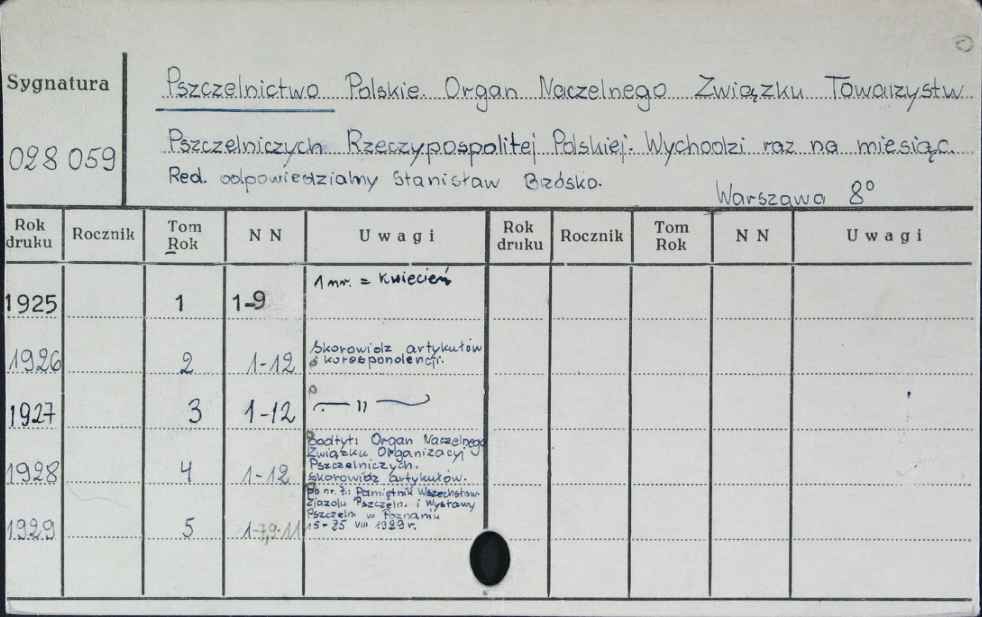 Sygnatura
028 059
Pszczelnictwo Polskie. Organ Naczelnego Związku Towarzystw
Pszczelniczych Rzeczypospolitej Polskiej. Wychodzi raz na miesiąc.
Red. odpowiedzialny Stanisław Brzósko.
Warszawa 8°
Rok druku Rocznik Tom Rok N N Uwagi Rok druku Rocznik Tom Rok N N Uwagi
1925 1 1-9 1 nr. = Kwiecień
1926 2 1-12 Skorowidz artykułów
i korespondencji.
1927 3 1-12 — " —
1928 4 1-12 Podtyt: Organ Naczelnego
Związku Organizacyj
Pszczelniczych.
Skorowidz artykułów.
1929 5 1-7,9-11 Do nr. 7: Pamiętnik Wszechsłow.
Zjazdu Pszczeln. i Wystawy
Pszczeln. w Poznaniu
15-25 VIII 1929 r.